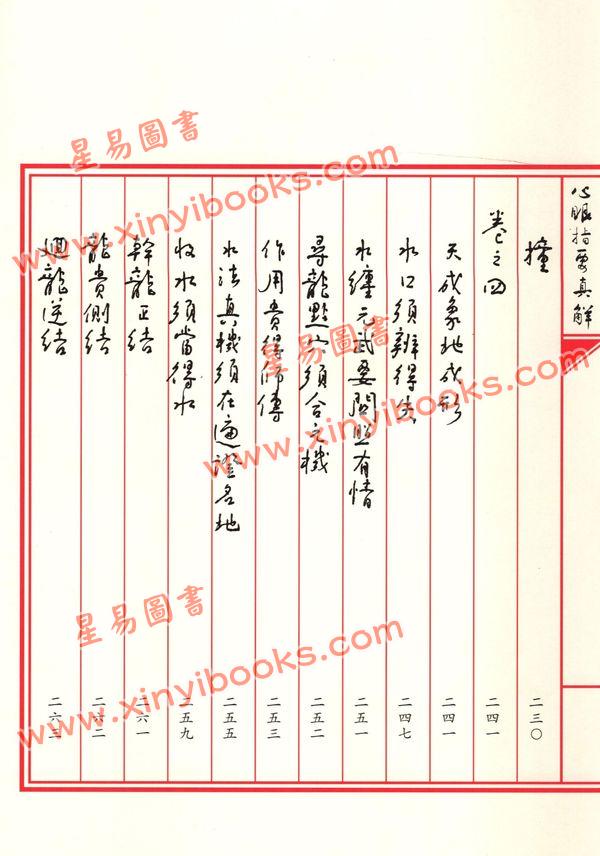 心眼指要真解
撞 二三〇
卷之四 二四一
天成象地成形 二四一
水口須辨得失 二四七
水纏元武要照有情 二五一
尋龍點穴須合元機 二五二
作用貴得師傳 二五三
水法真機須在遍證名地 二五五
收水須當得水 二五九
幹龍正結 二六一
龍貴側結 二六二
迴龍逆結 二六三
星易圖書
www.xinyibooks.com
星易圖書
www.xinyibooks.com
星易圖書
www.xinyibooks.com